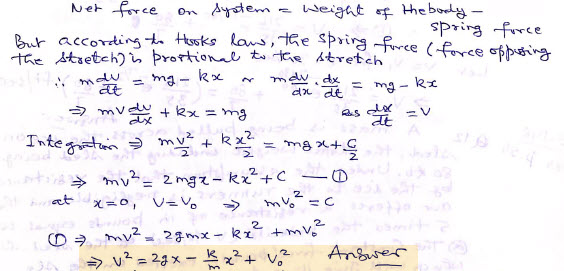 Net force on system = Weight of the body -
spring force
But according to Hooks law, the spring force (force opposing
the stretch) is prortional to the stretch
∴ m dv/dt = mg - kx ~ m dv/dx · dx/dt = mg - kx
⇒ mv dv/dx + kx = mg as dx/dt = v
Integration ⇒ m v²/2 + k x²/2 = mgx + c/2
⇒ mv² = 2mgx - kx² + C —①
at x=0, V=V₀ ⇒ mV₀² = C
① ⇒ mv² = 2gmx - kx² + mv₀²
⇒ v² = 2gx - k/m x² + V₀² Answer